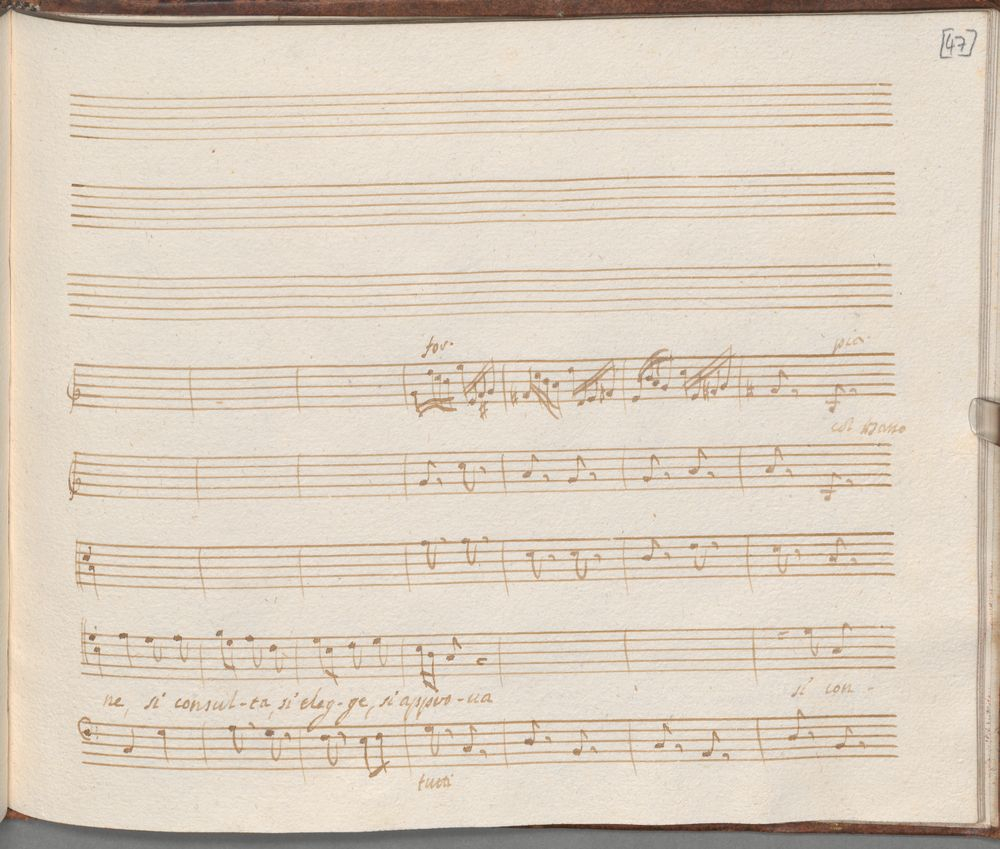 [47]
for.
pia.
col Basso
ne, si consul-ta, si eleg-ge, si appro-va
si con-
tutti